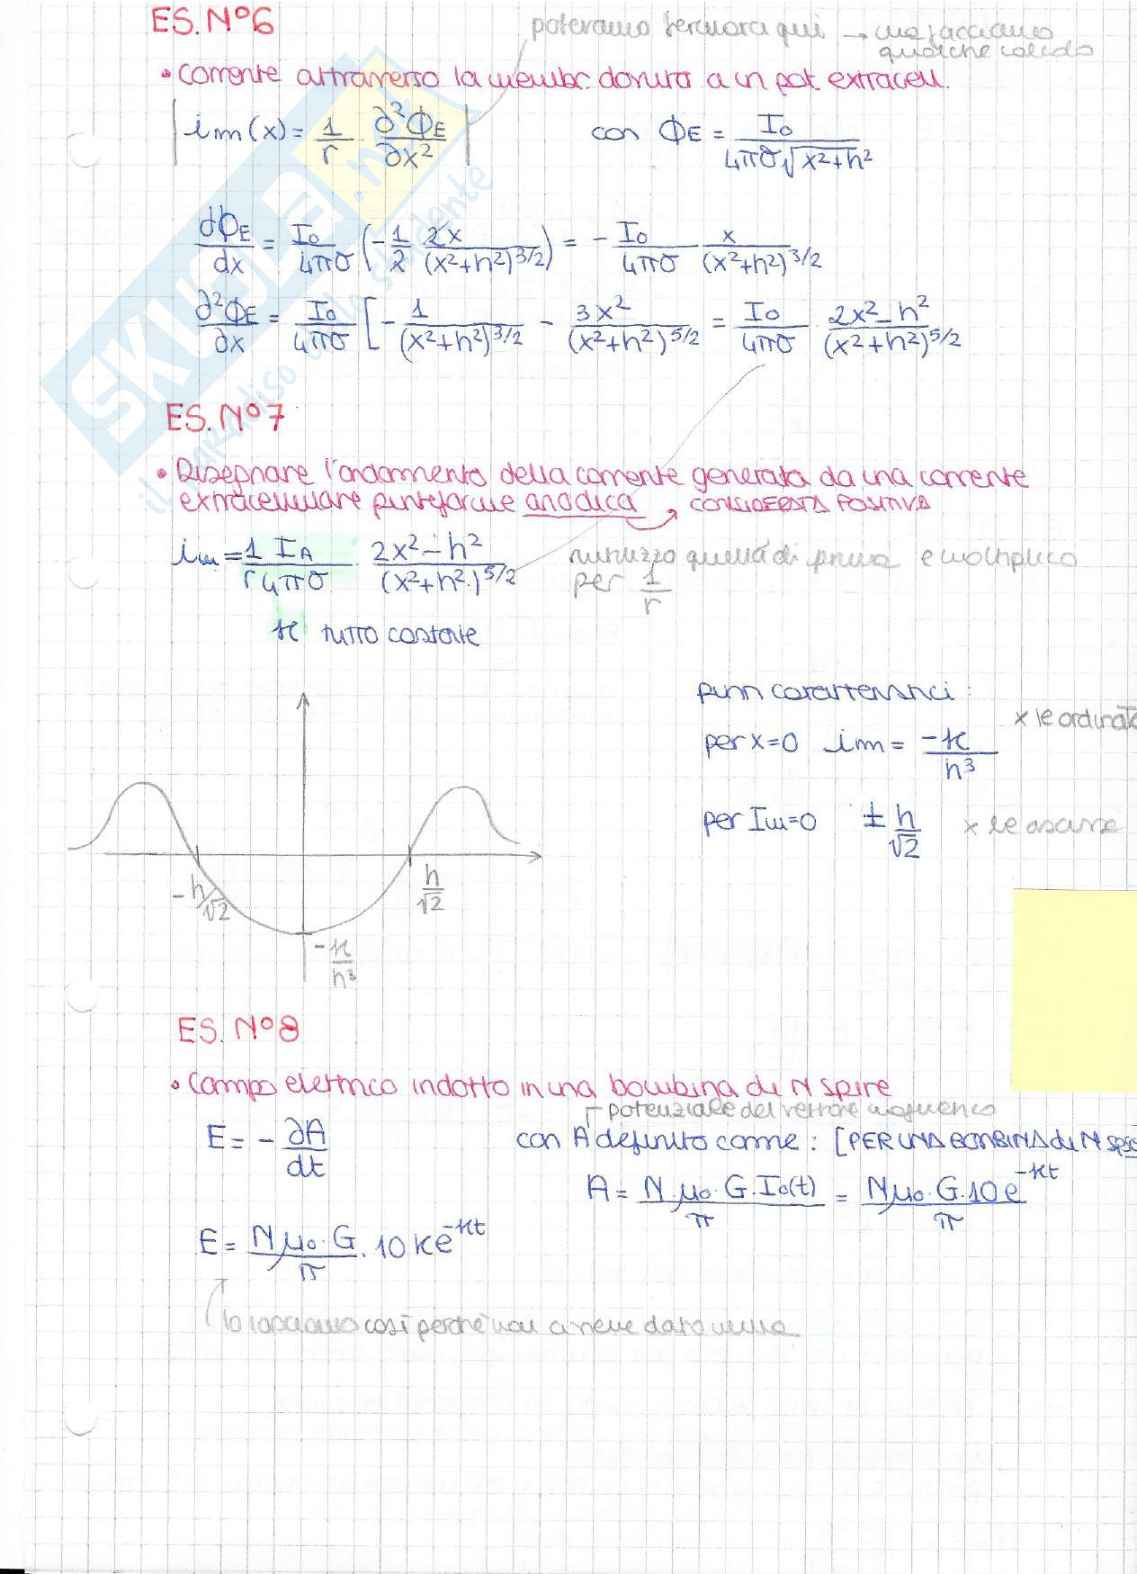 ES. N°6
potevamo fermarci qui → ma facciamo
qualche calcolo
• Corrente attraverso la membr. dovuta a un pot. extracell.
im(x) = 1/r ∂²ΦE/∂x² con ΦE = I₀/4πσ√x²+h²
dΦE/dx = I₀/4πσ (-1/2 2x/(x²+h²)^3/2) = - I₀/4πσ x/(x²+h²)^3/2
∂²ΦE/∂x = I₀/4πσ [- 1/(x²+h²)^3/2 - 3x²/(x²+h²)^5/2 = I₀/4πσ · 2x²-h²/(x²+h²)^5/2
SKUOLA.net
il paradiso dello studente
ES. N°7
• Disegnare l'andamento della corrente generata da una corrente
extracellulare puntiforme anodica → CONSIDERATA POSITIVA
im = 1/r IA/4πσ · 2x²-h²/(x²+h²)^5/2 riutilizzo quella di prima e moltiplico
per 1/r
K tutto costante
punti caratteristici:
per x=0 im = -K/h³ x le ordinate
per Im=0 ± h/√2 x le ascisse
-h/√2 h/√2
-K/h³
ES. N°8
• Campo elettrico indotto in una bombina di N spire
potenziale del vettore magnetico
E = - ∂A/dt con A definito come: [PER UNA BOMBINA di N spire
A = N·μ₀·G·I₀(t)/π = Nμ₀·G·10e^-Kt/π
E = Nμ₀·G/π · 10Ke^-Kt
lo lasciamo così perché non